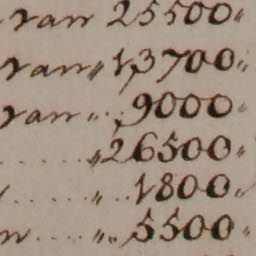 van 25500„
van „ 13700„
van „ 9000„
„ 26500„
„ 1800„
„ 5500„